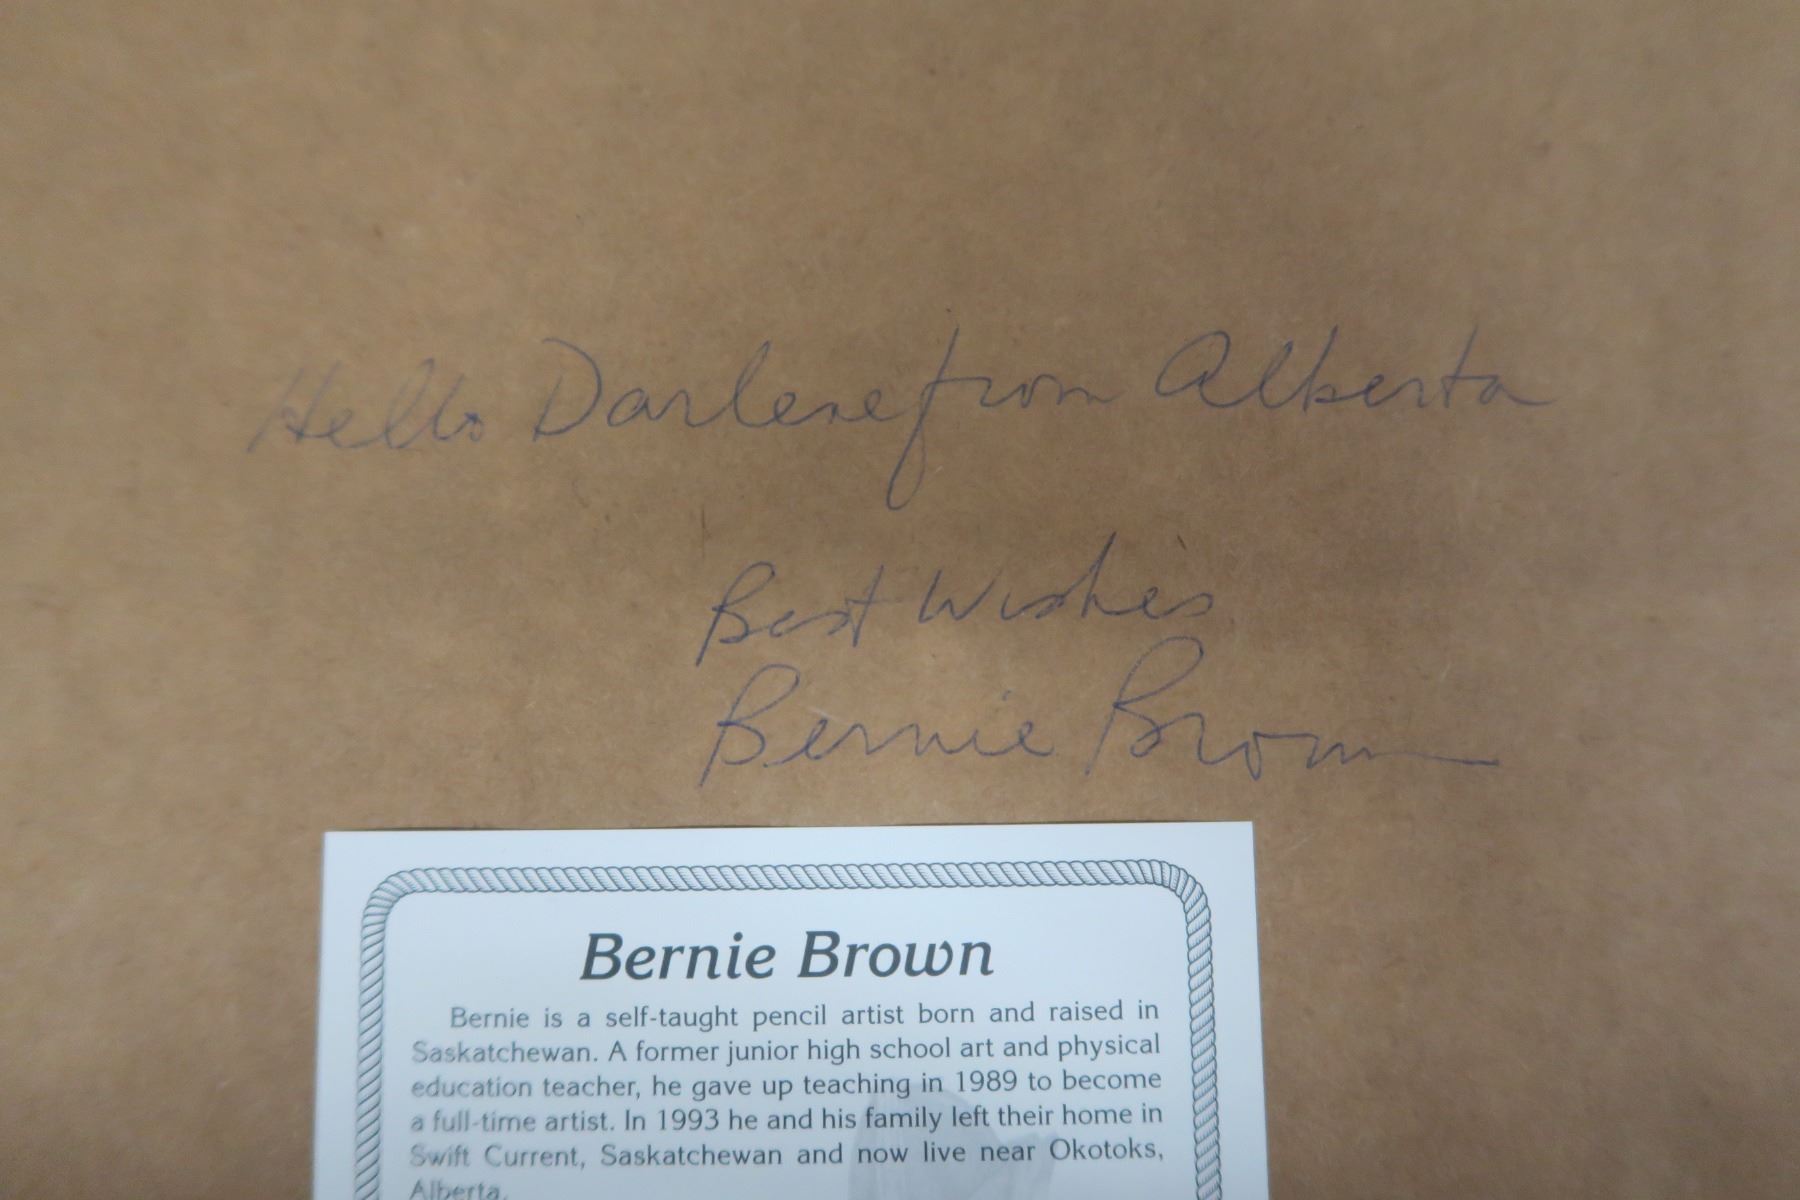 Hello Darlene from Alberta
Best Wishes
Bernie Brown
Bernie Brown
Bernie is a self-taught pencil artist born and raised in
Saskatchewan. A former junior high school art and physical
education teacher, he gave up teaching in 1989 to become
a full-time artist. In 1993 he and his family left their home in
Swift Current, Saskatchewan and now live near Okotoks,
Alberta.